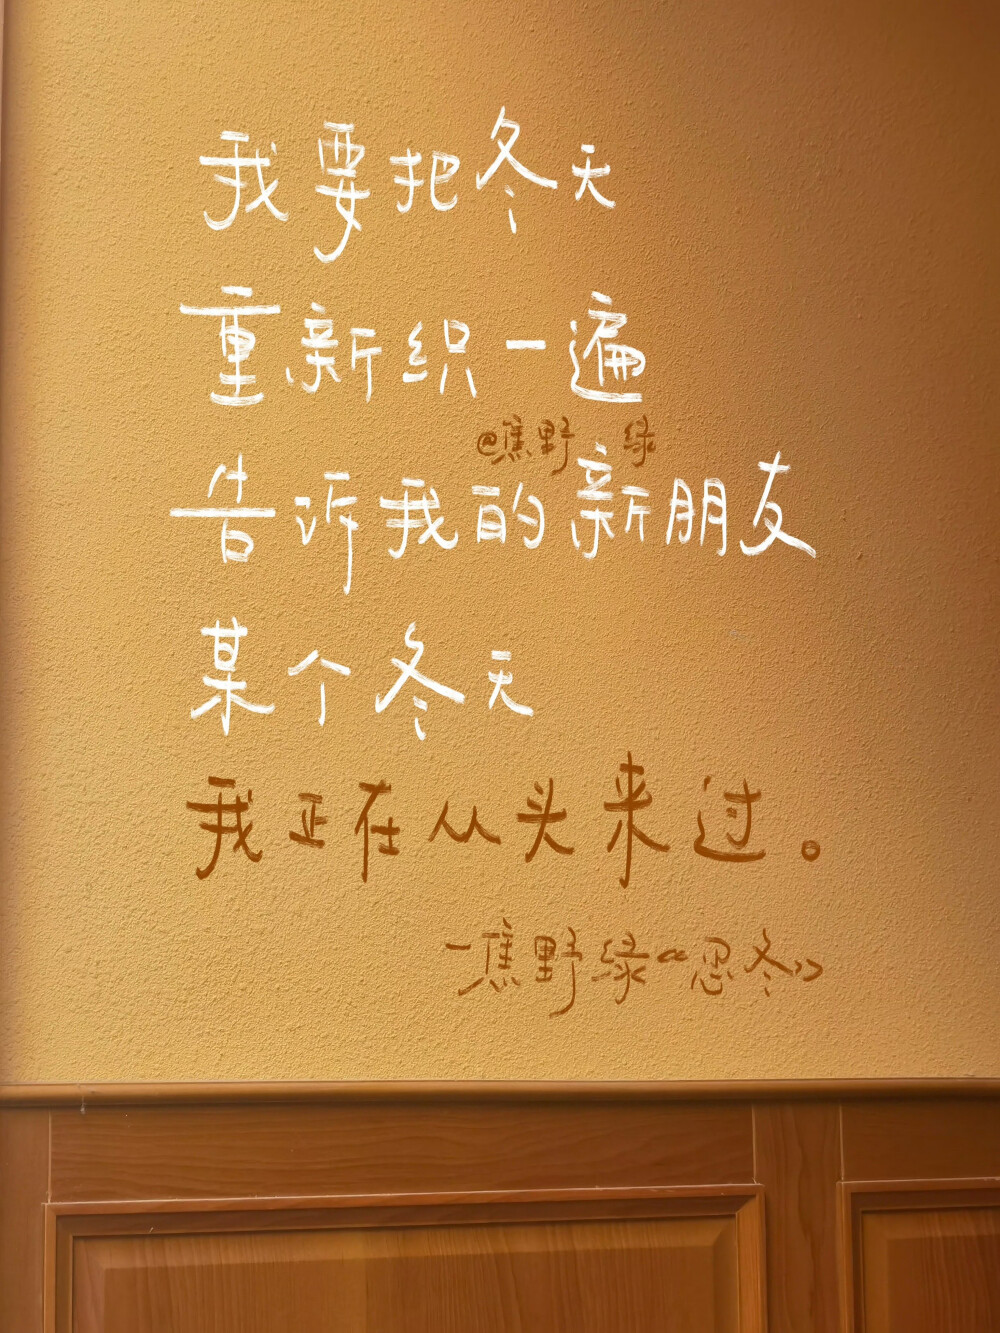 我要把冬天
重新织一遍
@蕉野 绿
告诉我的新朋友
某个冬天
我正在从头来过。
-蕉野绿“忍冬”